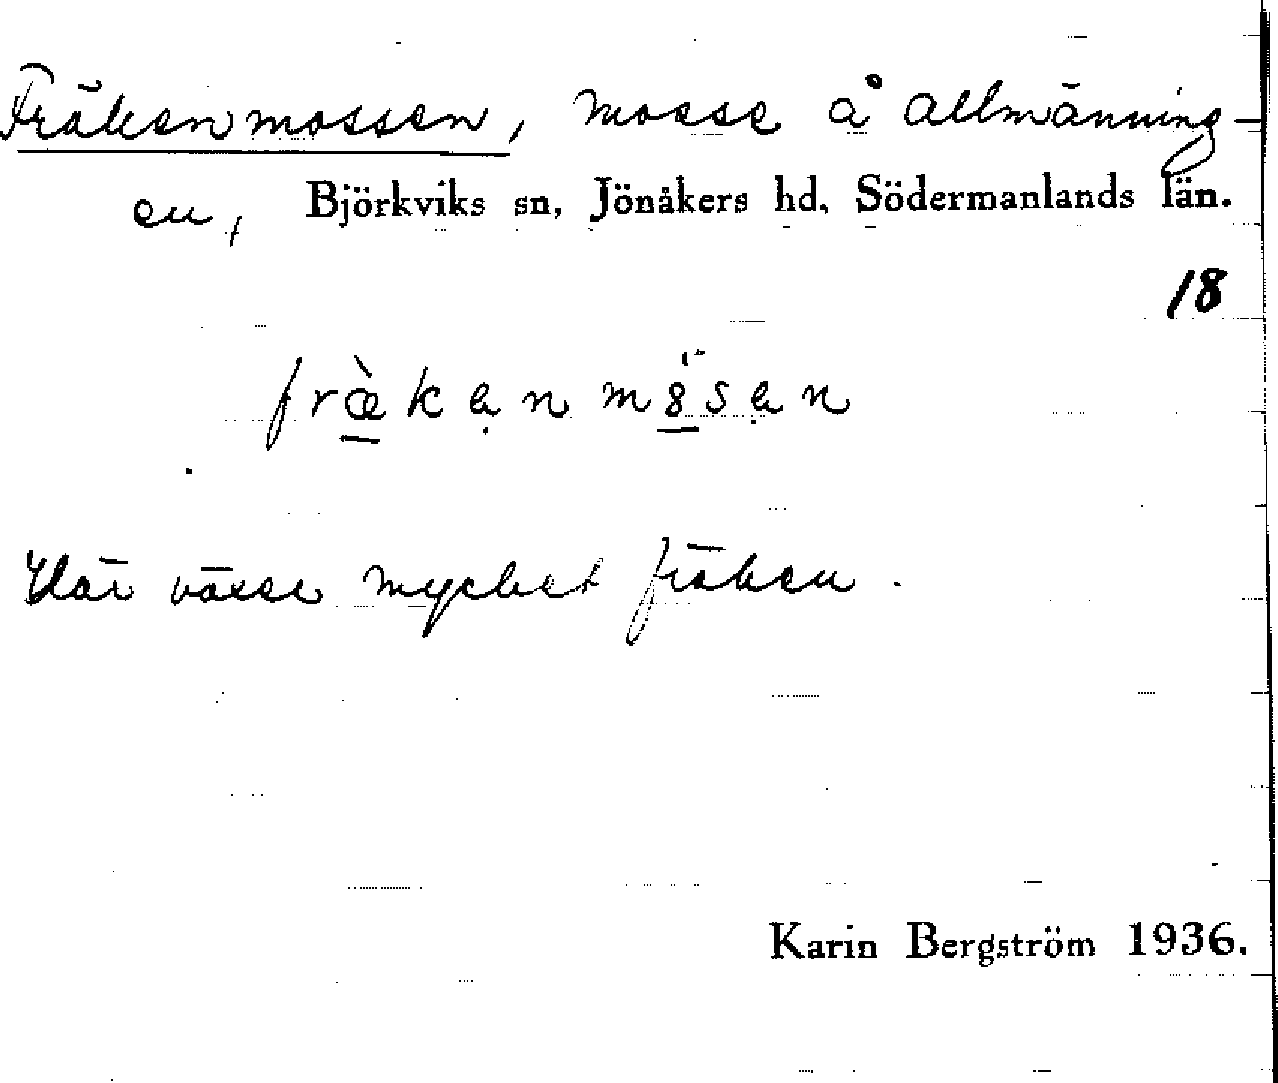 Fräkenmossen, mosse å allmänning-
en, Björkviks sn, Jönåkers hd, Södermanlands län.
18
fræ̀kenmösen
Här växer mycket fräken.
Karin Bergström 1936.